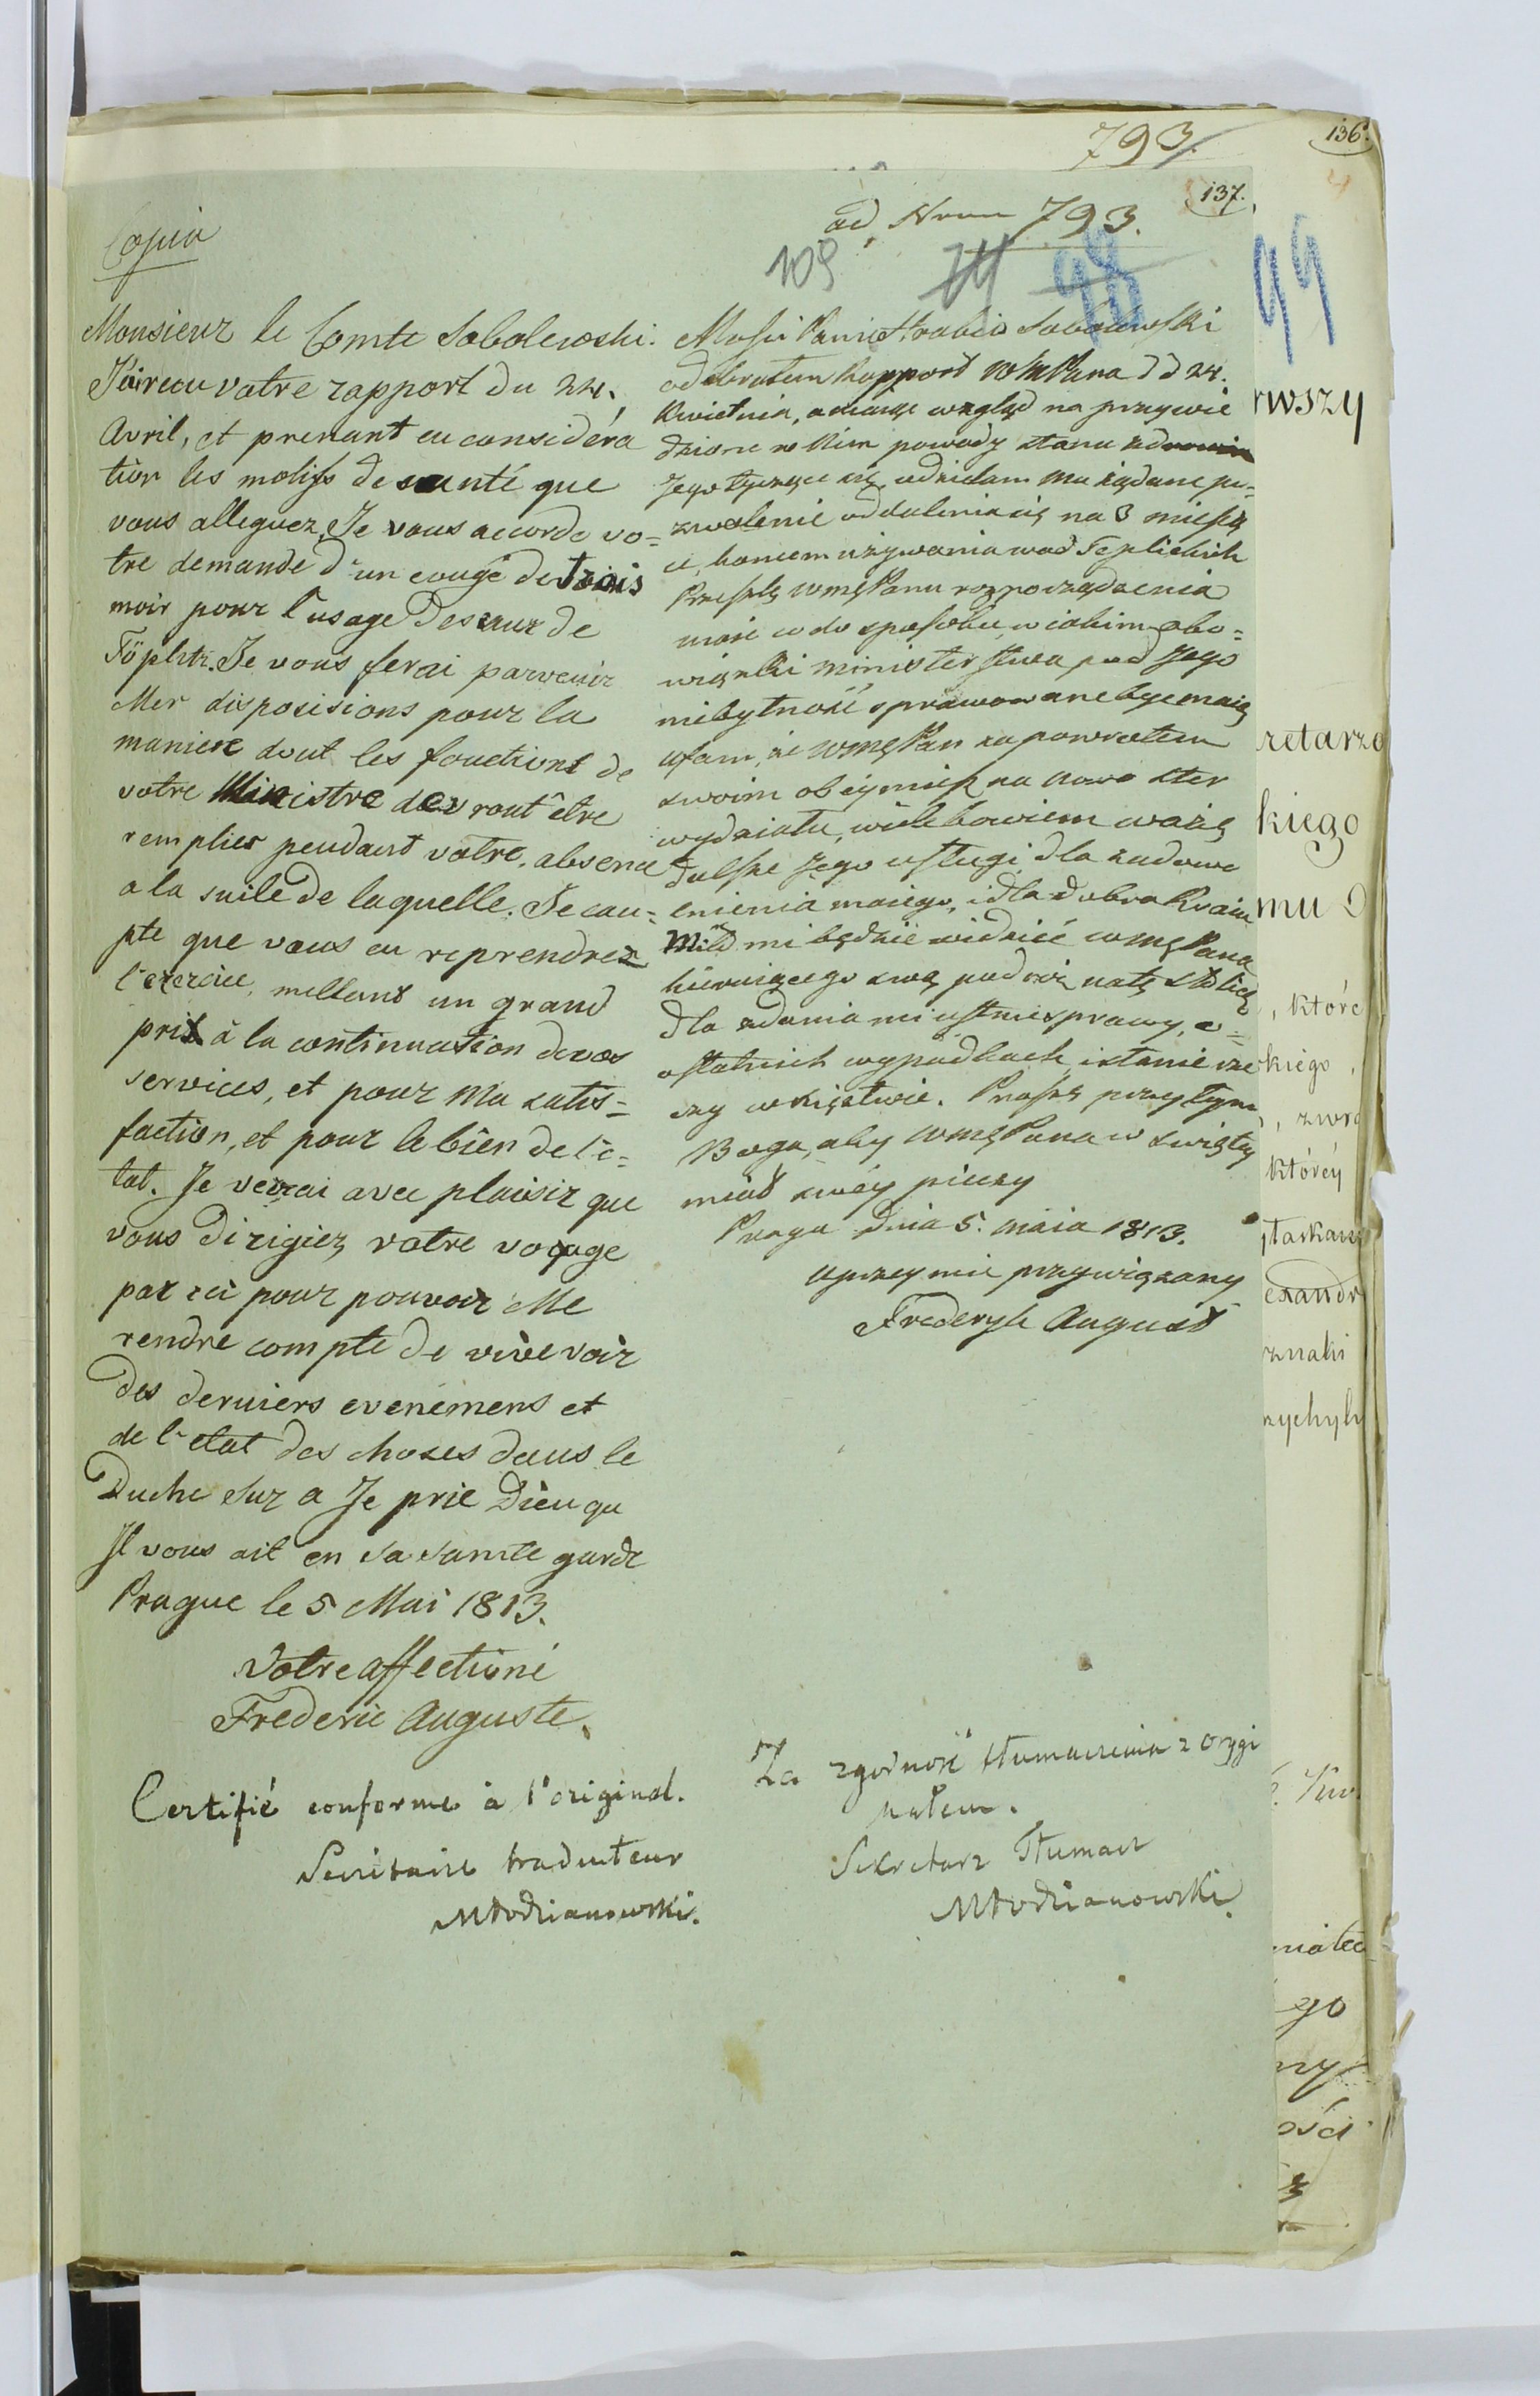 793.
136.
137.
ad Nrum 793.
109 98
99
Copia
Monsieur le Comte Sobolewski.
J'ai recu votre rapport du 24.
Avril, et prenant en considéra
tion les motifs de santé que
vous alleguez, Je vous accorde vo=
tre demande d'un congé de trois
mois pour l'usage des eaux de
Töplitz. Je vous ferai parvenir
Mes disposisions pour la
maniere dont les fonctions de
votre Ministre devront être
remplies pendant votre absence
a la suite de laquelle. Je com=
pte que vous en reprendrez
l'exercice, mettant un grand
prix à la continuation de vos
services, et pour Ma satis=
faction, et pour le bien de l'é=
tat. Je verrai avec plaisir que
vous dirigiez votre voyage
par ici pour pouvoir Me
rendre compte de vive voix
des derniers evenemens et
de l'etat des choses dans le
Duché sur a Je prie Dieu qu
Il vous ait en sa sainte garde
Prague le 5 Mai 1813.
Votre affectioné
Frederic Auguste.
Certifié conforme à l'original.
Secrétaire traducteur
Młodzianowski.
Mości Panie Hrabio Sobolewski
odebrałem Rapport WMPana dd 24.
Kwietnia, a maiąc wzgląd na przywie
dzione w Nim powody stanu zdrowia
Jego tyczące się, udzielam mu żądane po=
zwolenie oddalenia się na 3 miesią
ce, końcem używania wod Teplickich
Prześlę WMęPanu rozporządzenia
moie co do sposobu, w iakim obo=
wiązki ministerstwa pod Jego
niebytność sprawowane być maią
ufam, że WMęPan za powrotem
swoim obeymiesz na nowo ster
wydziału, wiele bowiem ważę
dalsze Jego usługi dla zadowo
lnienia moiego, i dla dobra Kraiu
Miło mi będzie widzieć WMęPana
kieruiącego swą podroż na tę stolicę
dla zdania mi ustnie sprawy, o=
ostatnich wypadkach i stanie rze
czy w Xięstwie. Proszę przytym
Boga, aby WMęPana w swiętey
miał swéy pieczy
Praga dnia 5. maia 1813.
uprzeymie przywiązany
Frederyk August
Za zgodność tłumaczenia z orygi
nałem.
Sekretarz Tłumacz
Młodzianowski.
rwszy
retarza
kiego
mu
, które
kiego
, zwro
którey
exandr
znaki
zychyln
go
ości